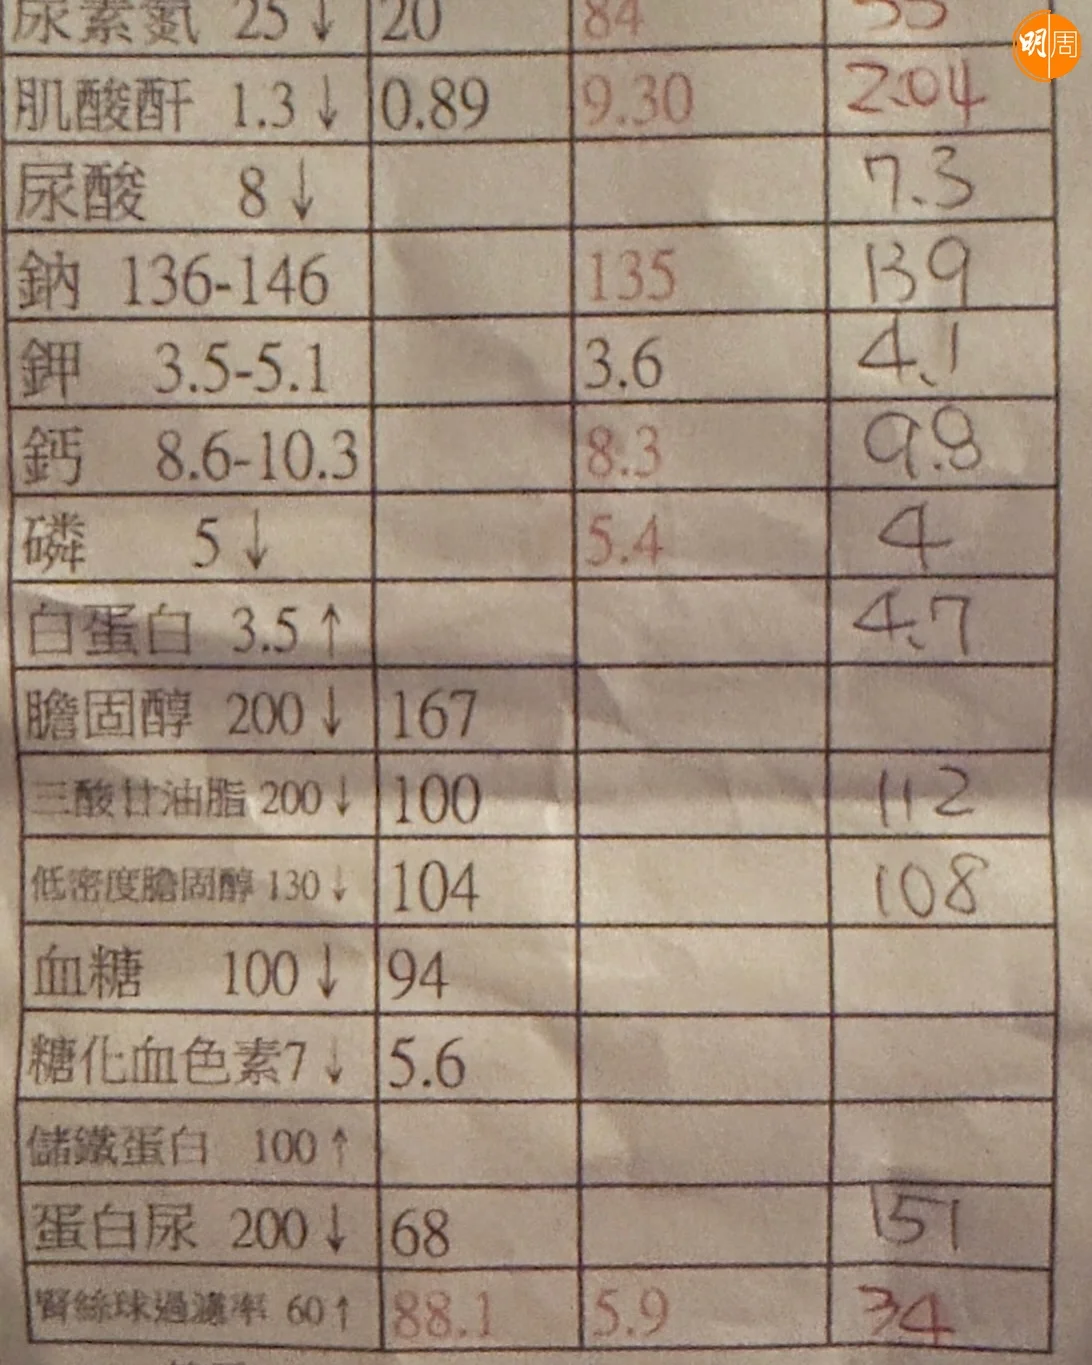 尿素氮 25↓ 20 84 55
肌酸酐 1.3↓ 0.89 9.30 2.04
尿酸 8↓ 7.3
鈉 136-146 135 139
鉀 3.5-5.1 3.6 4.1
鈣 8.6-10.3 8.3 9.8
磷 5↓ 5.4 4
白蛋白 3.5↑ 4.7
膽固醇 200↓ 167
三酸甘油脂 200↓ 100 112
低密度膽固醇 130↓ 104 108
血糖 100↓ 94
糖化血色素7↓ 5.6
儲鐵蛋白 100↑
蛋白尿 200↓ 68 151
腎絲球過濾率 60↑ 88.1 5.9 34
明周